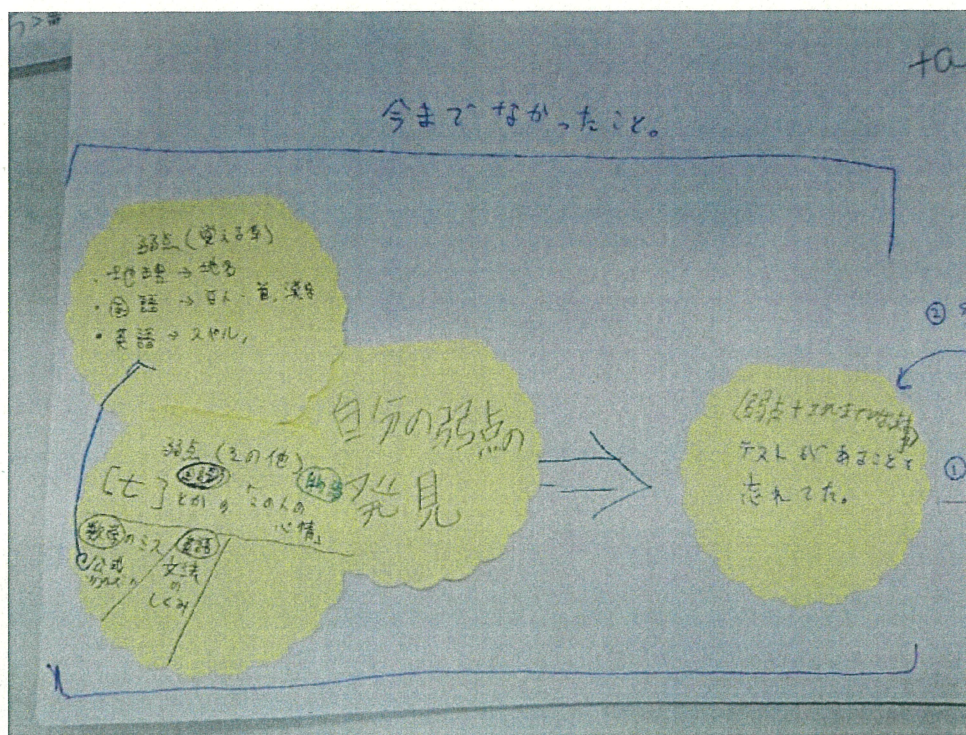 今までなかったこと。
弱点(覚える系)
・地理→地名
・国語→百人一首、漢字
・英語→スペル,
自分の弱点の
発見
弱点(その他)
国語
とかの「この人の
心情」
数学のミス
公式
英語
文法
の
しくみ
テストがあることを
忘れてた。
②
①
+α